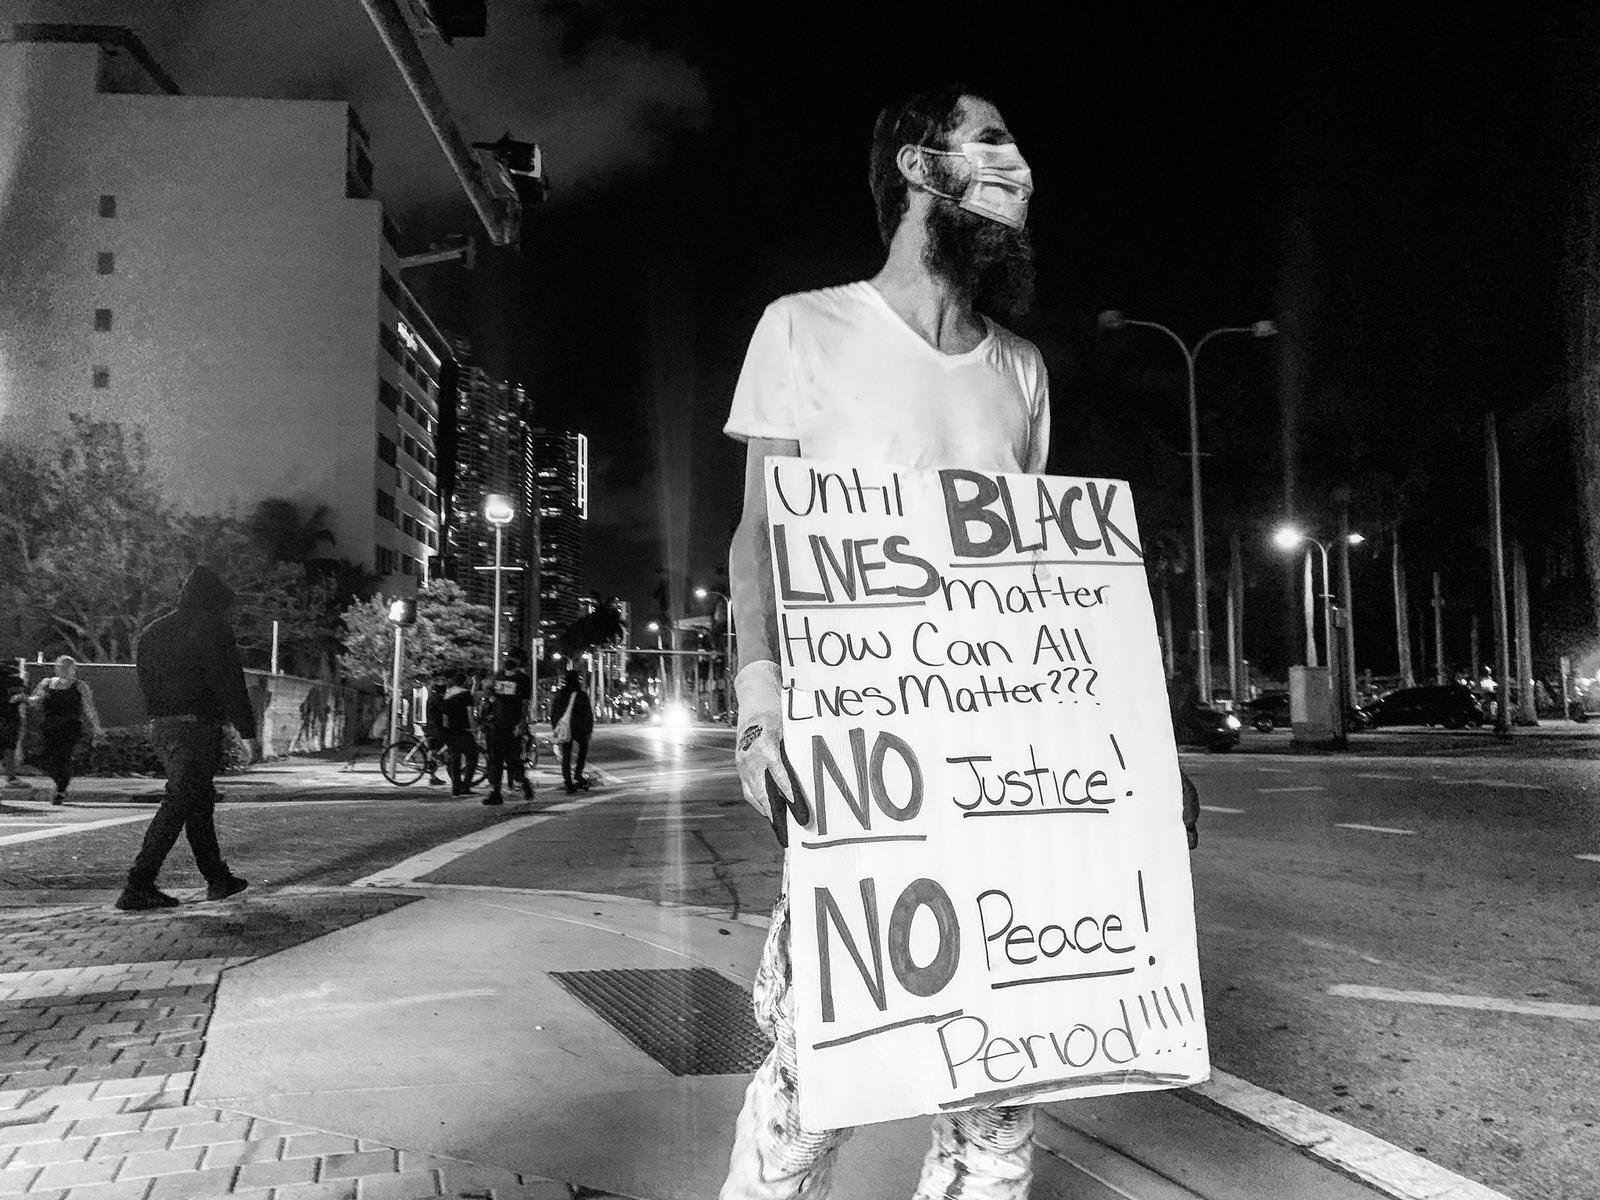 Until BLACK
LIVES Matter
How Can All
Lives Matter???
NO Justice!
NO Peace!
Period!!!!